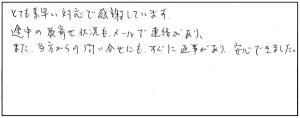 とても素早い対応で感謝しています。
途中の取寄せ状況も、メールで連絡があり、
また、当方からの問い合せにも、すぐに返事があり、安心できました。